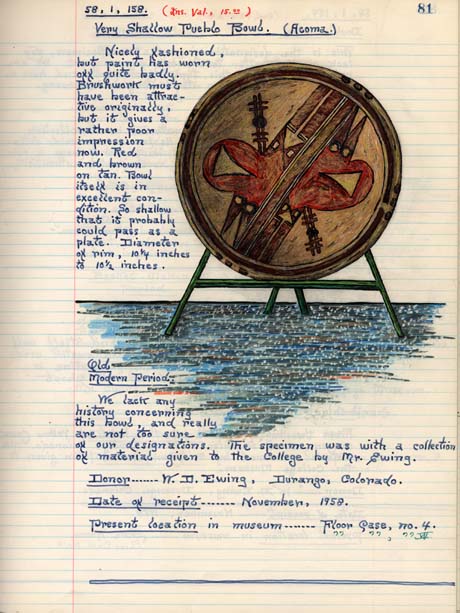 58, 1, 158. (Ins. Val., 15.00) 81
Very Shallow Pueblo Bowl. (Acoma.)
Nicely fashioned,
but paint has worn
off quite badly.
Brushwork must
have been attrac-
tive originally,
but it gives a
rather poor
impression
now. Red
and brown
on tan. Bowl
itself is in
excellent con-
dition. So shallow
that it probably
could pass as a
plate. Diameter
of rim, 10 1/4 inches
to 10 1/2 inches.
Old
Modern Period:
We lack any
history concerning
this bowl, and really
are not too sure
of our designations. The specimen was with a collection
of material given to the College by Mr. Ewing.
Donor------ W. D. Ewing, Durango, Colorado.
Date of receipt------ November, 1958.
Present location in museum------ Floor Case, no. 4.
" " , " VI